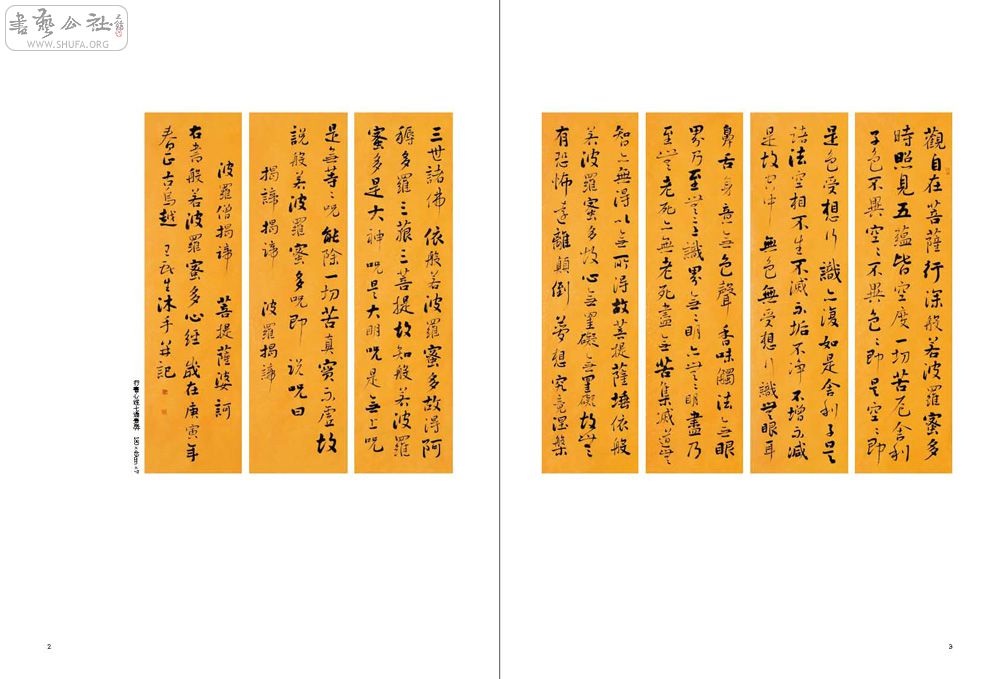 書藝公社
WWW.SHUFA.ORG
觀自在菩薩行深般若波羅蜜多
時照見五蘊皆空度一切苦厄舍利
子色不異空〻不異色〻即是空〻即
是色受想行識亦復如是舍利子是
諸法空相不生不滅不垢不净不增不減
是故空中無色無受想行識無眼耳
鼻舌身意無色聲香味觸法無眼
界乃至無意識界無無明亦無無明盡乃
至無老死亦無老死盡無苦集滅道無
智亦無得以無所得故菩提薩埵依般
若波羅蜜多故心無罣礙無罣礙故無
有恐怖遠離顛倒夢想究竟涅槃
三世諸佛依般若波羅蜜多故得阿
耨多羅三藐三菩提故知般若波羅
蜜多是大神咒是大明咒是無上咒
是無等〻咒能除一切苦真實不虛故
說般若波羅蜜多咒即說咒曰
揭諦揭諦波羅揭諦
波羅僧揭諦菩提薩婆訶
右書般若波羅蜜多心經歲在庚寅年
春正古烏越王民生沐手并記
2
3